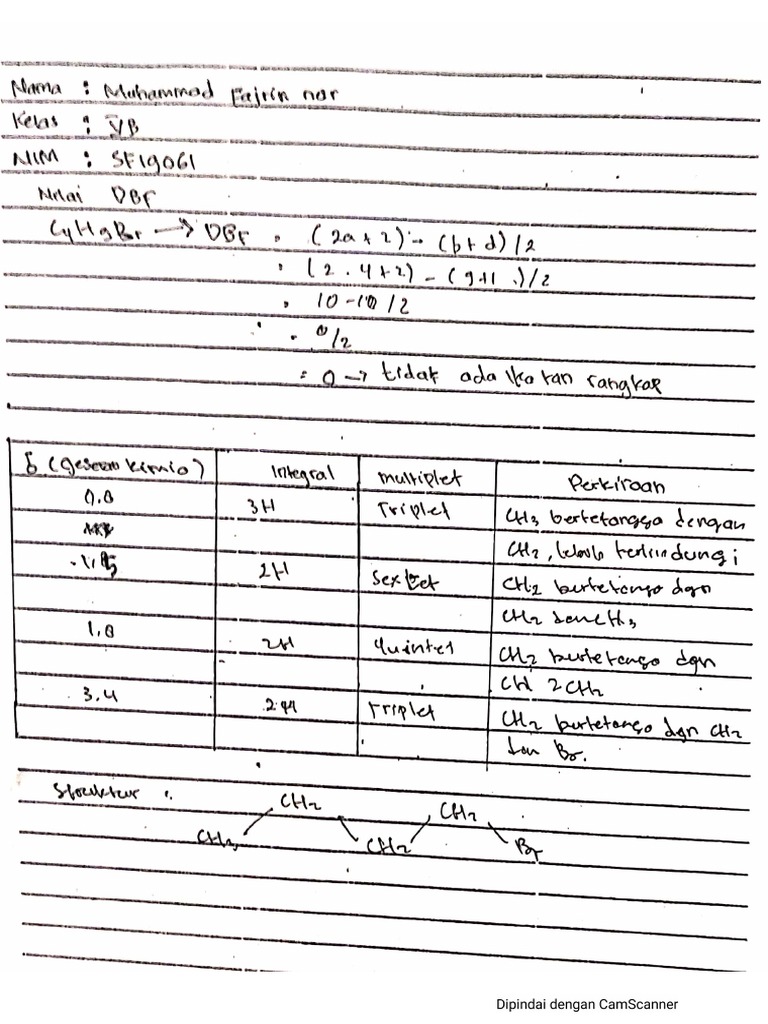 Nama : Muhammad Fajrin nor
Kelas : VB
NIM : SF19061
Nilai DBF
C4H9Br → DBF = (2a+2) - (b+d)/2
= (2.4+2) - (9+1)/2
= 10-10/2
= 0/2
= 0 → tidak ada ikatan rangkap
δ (geseran kimia) Integral multiplet Perkiraan
0.8 3H Triplet CH3 bertetangga dengan
CH2, lebih terlindungi
2H Sextet CH2 bertetanga dgn
CH2 dan CH3
1.8 2H quintet CH2 bertetanga dgn
CH 2CH2
3.4 2H Triplet CH2 bertetanga dgn CH2
dan Br.
Struktur :
CH2 CH2
CH3 CH2 Br
Dipindai dengan CamScanner